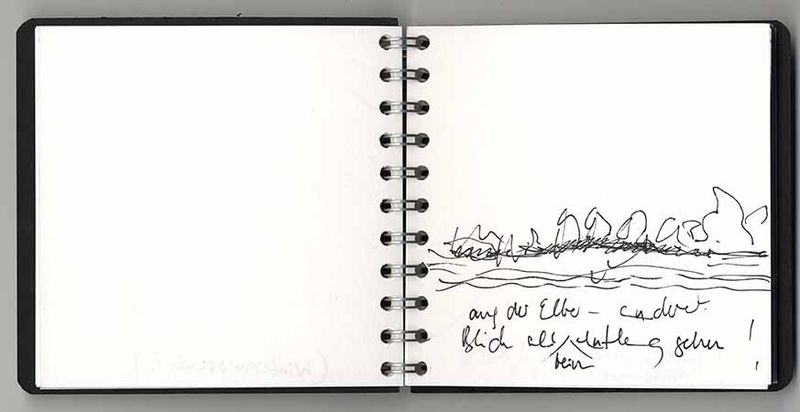 auf der Elbe – anderer
Blick als beim entlang gehen !
!